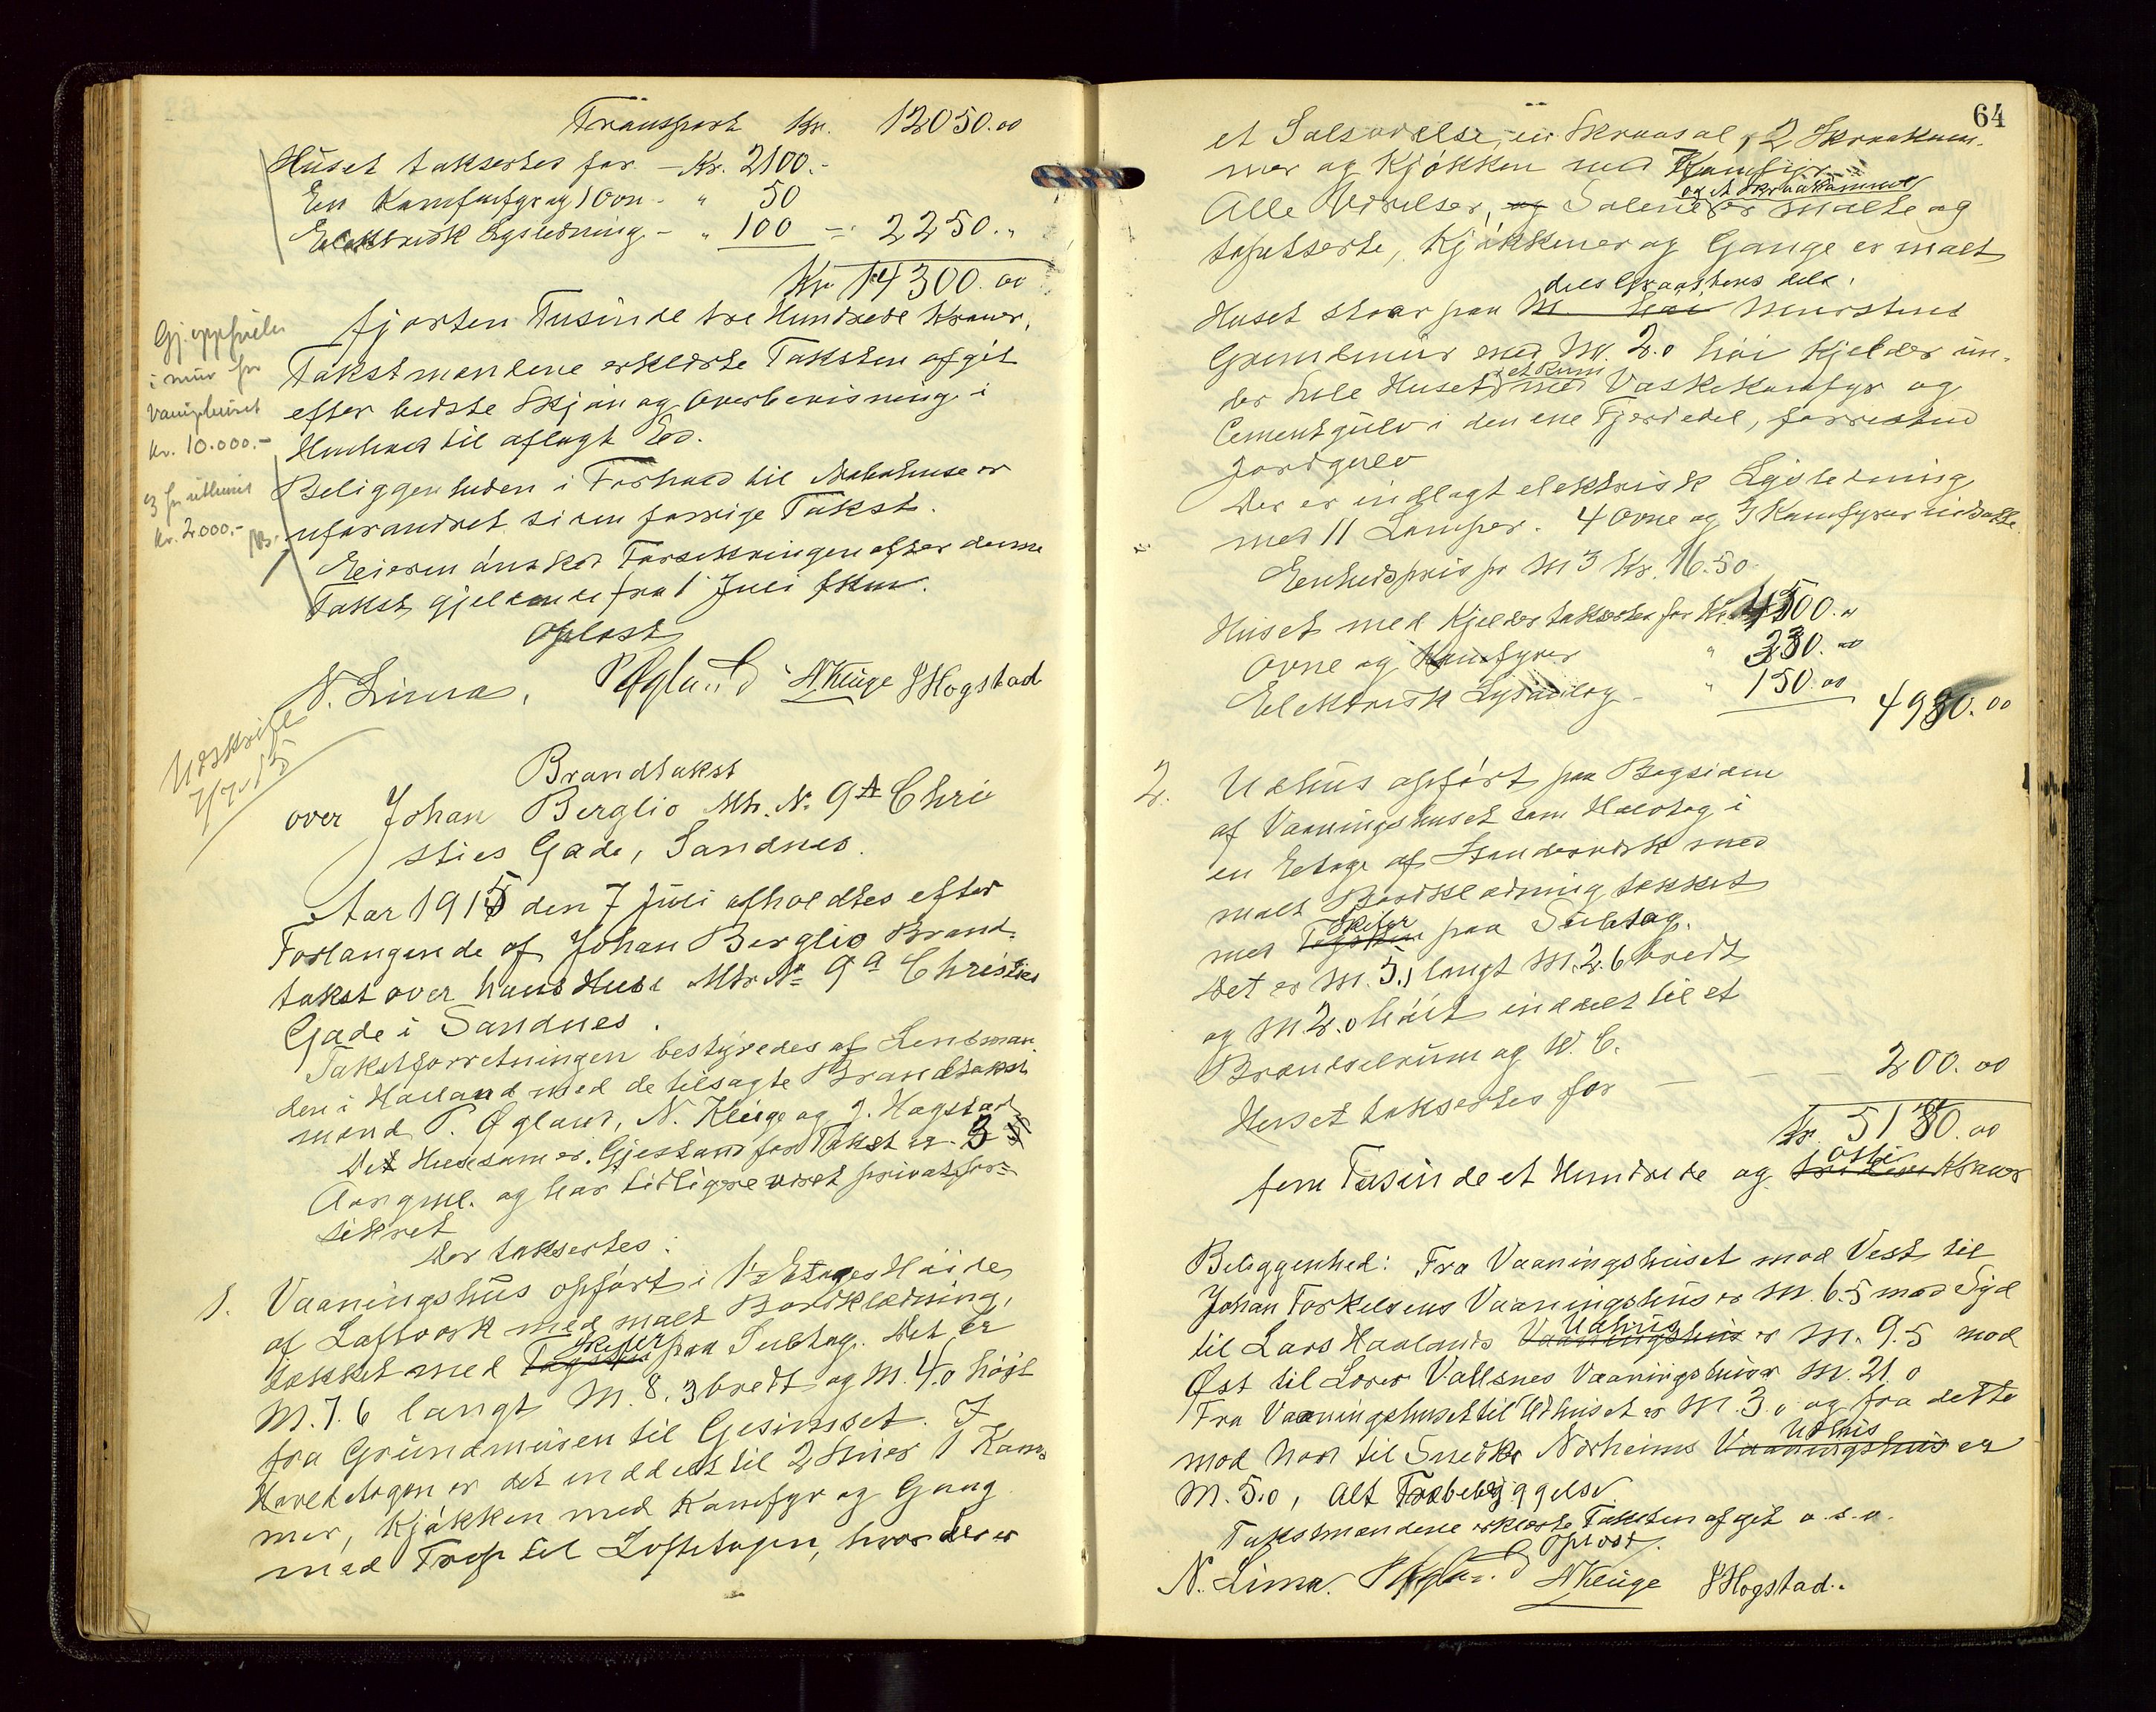 Transport Kr. 12050.00
Huset taksertes for - Kr. 2100.-
En Kamfufyr og 1 Ovn - " 50
Elektrisk Lysledning - " 100 = 2250. "
Kr 14300.00
fjorten Tusinde tre Hundrede Kroner.
Takstmændene erklærte Taksten afgit
efter bedste Skjøn og Overbevisning i
Henhold til aflagt Ed.
Beliggenheden i Forhold til Nabohuse er
uforandret siden forrige Takst.
Eieren ønsker Forsikringen efter denne
Takst gjeldende fra 1 Juli
Oplæst
N. Lima, P Øglænd N Kluge J Hogstad
Gj. oppførelse
i mur for
vaaningshuset
kr. 10.000.-
og for uthuset
kr. 2.000.-
Udskrift
7/7-15
Brandtakst
over Johan Berglio Mtr. No 9A Chri
sties Gade, Sandnes.
Aar 1915 den 7 Juli afholdtes efter
Forlangende af Johan Berglio Brand-
takst over hans Huse Mtr. No 9a Christies
Gade i Sandnes.
Takstforretningen bestyredes af Lensman
den i Høiland med de tilsagte Brandtakst
mænd P. Øglænd, N. Kluge og J. Hogstad
Det Huse som er Gjestand for Takst er 3
Aar gml. og har tidligere været privat for-
sikret
Der taksertes:
1. Vaaningshus opført i 1½ Etages Høide
af Laftverk med malt Bordklædning,
tækket med Tagsten Skifer paa Sultag. Det er
M. 7.6 langt M. 8.3 bredt og M. 4.0 højt
fra Grundmuren til Gesimset. I
Hovedetagen er det inddelt til 2 Stuer 1 Kam-
mer, Kjøkken med Kamfyr og Gang
med Trap til Loftetagen, hvor der er
64
et Salsværelse, en Skraasal, 2 Skraakam-
mer og Kjøkken med Kamfyr
og et Skraakammer
Alle Værelser, og Salene er malte og
tapetserte, Kjøkkener og Gange er malt
dels Graastens dels
Huset staar paa M. høi Murstens
Grundmur med M. 2.0 høi Kjelder un-
et Rum
der hele Huset med Vaskekamfyr og
Cementgulv i den ene Fjerdedel, forresten
Jordgulv
Der er indlagt elektrisk Lysledning
med 11 Lamper. 4 Ovne og 3 Kamfyrer indsatte
Enhedspris pr M3 Kr. 16.50
Huset med Kjelder taksertes for Kr. 4500.00
Ovne og Kamfyrer " 330.00
Elektrisk Lysanlæg - " 150.00 4980.00
2. Udhus opført paa Bagsiden
af Vaaningshuset som Halvtag i
en Etage af Standerverk med
malt Bordklædning tækket
med Tagsten Skifer paa Sultag.
Det er M. 3.1 langt M. 2.6 bredt
og M 2.0 høit inddelt til et
Brændselrum og W.C.
Huset taksertes for - - - 200.00
Kr. 5180.00
otti
fem Tusinde et Hundrede og Kroner
Beliggenhed: Fra Vaaningshuset mod Vest til
Johan Torkelsens Vaaningshus er M. 6.5 mod Syd
Udhus
til Lars Haalands Vaaningshus er M. 9.5 mod
Øst til Vallsnes Vaaningshus er M. 21.0
Fra Vaaningshuset til Udhuset er M. 3.0 og fra dette
Udhus
mod Nord til Snedker Norheims Vaaningshus er
M. 5.0, alt Træbebyggelse
Takstmændene erklærte Taksten afgit o.s.v.
Oplæst.
N. Lima. P Øglænd N Kluge J Hogstad.